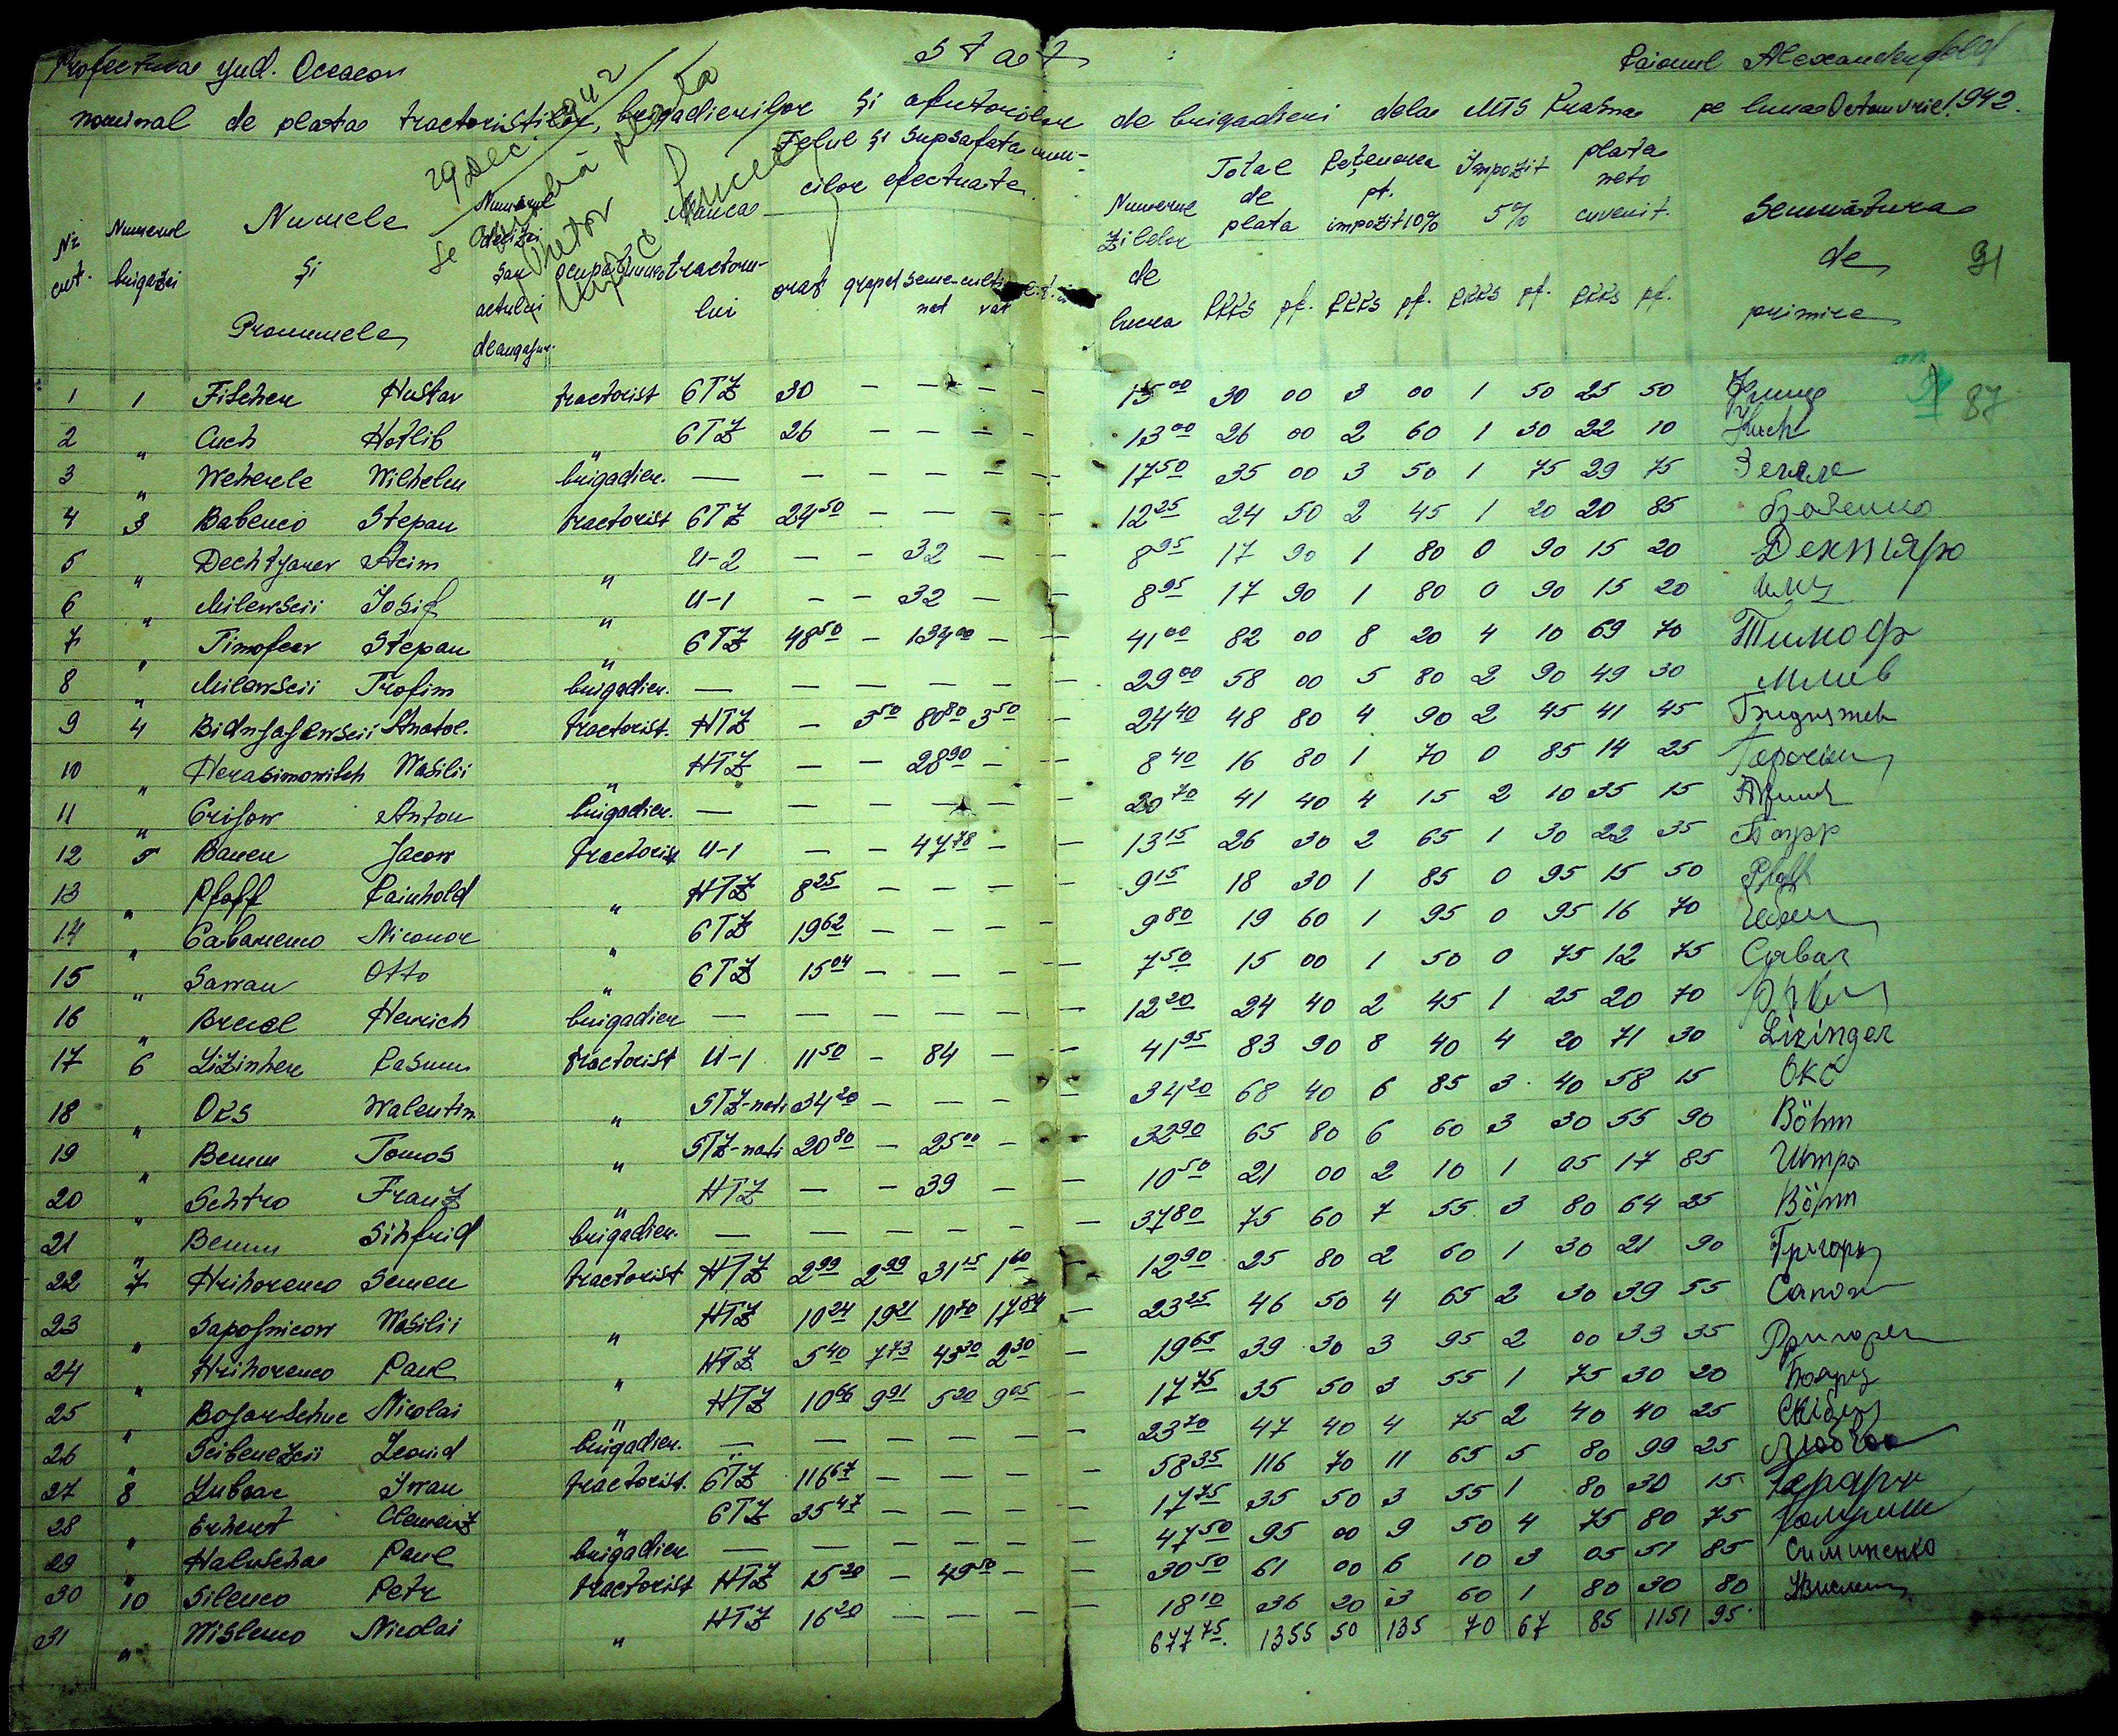 Prefectura jud. Oceacov Stat Raionul Alexanderfeld
nominal de plata tractoristilor, brigadierilor și ajutorilor de brigadieri dela MTS Krasna pe luna Octomvrie 1942.
29 Dec. 1942
Se aprobă plata
Pretor
Nr. crt. Numerul brigăzii Numele și Pronumele Numerul deciziei sau actului de angajar. ocupațiunea Marca tractorului Felul și supsafata muncilor efectuate arat grapat semenat cultivat Numerul zilelor de lucru Total de plata RKKS pf. Rețenerea pt. impozit 10% RKKS pf. Impozit 5% RKKS pf. plata neto cuvenit. RKKS pf. Semnătura de primire
91
87
1 1 Fischer Hustav tractorist CTZ 30 — — — — 15 00 30 00 3 00 1 50 25 50
2 " Cuch Hotlib " CTZ 26 — — — — 13 00 26 00 2 60 1 30 22 10 Huch
3 " Weherle Wilhelm brigadier. — — — — — — 17 50 35 00 3 50 1 75 29 75
4 3 Babenco Stepan tractorist CTZ 24 50 — — — — 12 25 24 50 2 45 1 20 20 85 Бабенко
5 " Dechtyarev Acim " U-2 — — 32 — — 8 95 17 90 1 80 0 90 15 20 Дехтяро
6 " Milewscii Iosif " U-1 — — 32 — — 8 95 17 90 1 80 0 90 15 20
7 " Timofeev Stepan " CTZ 48 50 — 134 00 — — 41 00 82 00 8 20 4 10 69 70 Тимоф
8 " Milewscii Trofim brigadier. — — — — — — 29 00 58 00 5 80 2 90 49 30 Милев
9 4 Bidnjajewscii Anatol. tractorist. HTZ — 3 50 80 80 3 50 24 40 48 80 4 90 2 45 41 45
10 " Herasimowitch Wasilii " HTZ — — 28 90 — — 8 40 16 80 1 70 0 85 14 25
11 " Grisow Anton brigadier. — — — — — 20 70 41 40 4 15 2 10 35 15
12 5 Bauer Jacow tractorist U-1 — — 47 78 — — 13 15 26 30 2 65 1 30 22 35 Баур
13 " Pfaff Rainhold " HTZ 8 25 — — — — 9 15 18 30 1 85 0 95 15 50 Pfaff
14 " Cabanenco Niconor " CTZ 19 62 — — — — 9 80 19 60 1 95 0 95 16 70
15 " Sawan Otto " CTZ 15 04 — — — — 7 50 15 00 1 50 0 75 12 75 Саван
16 " Brend Henrich brigadier — — — — — — 12 20 24 40 2 45 1 25 20 70
17 6 Lizinher Rasmu tractorist U-1 11 50 — 84 — — 41 95 83 90 8 40 4 20 71 30 Lizinger
18 " Ocs Walentin " STZ-nati 34 20 — — — — 34 20 68 40 6 85 3 40 58 15 Окс
19 " Bemm Tomos " STZ-nati 20 80 — 25 00 — — 32 90 65 80 6 60 3 30 55 90 Böhm
20 " Schtro Franz " HTZ — — 39 — — 10 50 21 00 2 10 1 05 17 85 Штро
21 " Bemm Sihfrid brigadier. — — — — — — 37 80 75 60 7 55 3 80 64 25 Böhm
22 7 Hrihorenco Semen tractorist HTZ 2 99 2 99 31 15 1 60 — 12 90 25 80 2 60 1 30 21 90 Григор
23 " Sapojnicow Wasilii " HTZ 10 24 19 21 10 70 17 84 — 23 25 46 50 4 65 2 30 39 55 Сапож
24 " Hrihorenco Paul " HTZ 5 40 7 73 43 30 2 30 — 19 65 39 30 3 95 2 00 33 35 Григорен
25 " Bojarschuc Nicolai " HTZ 10 66 9 91 5 20 9 05 — 17 75 35 50 3 55 1 75 30 20 Бояру
26 " Scibenezcii Leonid brigadier. — — — — — — 23 70 47 40 4 75 2 40 40 25 Скіб
27 8 Lubcac Iwan tractorist. CTZ 116 67 — — — — 58 35 116 70 11 65 5 80 99 25
28 " Erhert Clemenz " CTZ 35 47 — — — — 17 75 35 50 3 55 1 80 30 15
29 " Haluscha Paul brigadier — — — — — — 47 50 95 00 9 50 4 75 80 75
30 10 Silenco Petr tractorist HTZ 15 20 — 49 50 — — 30 50 61 00 6 10 3 05 51 85
31 " Wislenco Nicolai " HTZ 16 20 — — — — 18 10 36 20 3 60 1 80 30 80
677 75. 1355 50 135 70 67 85 1151 95.